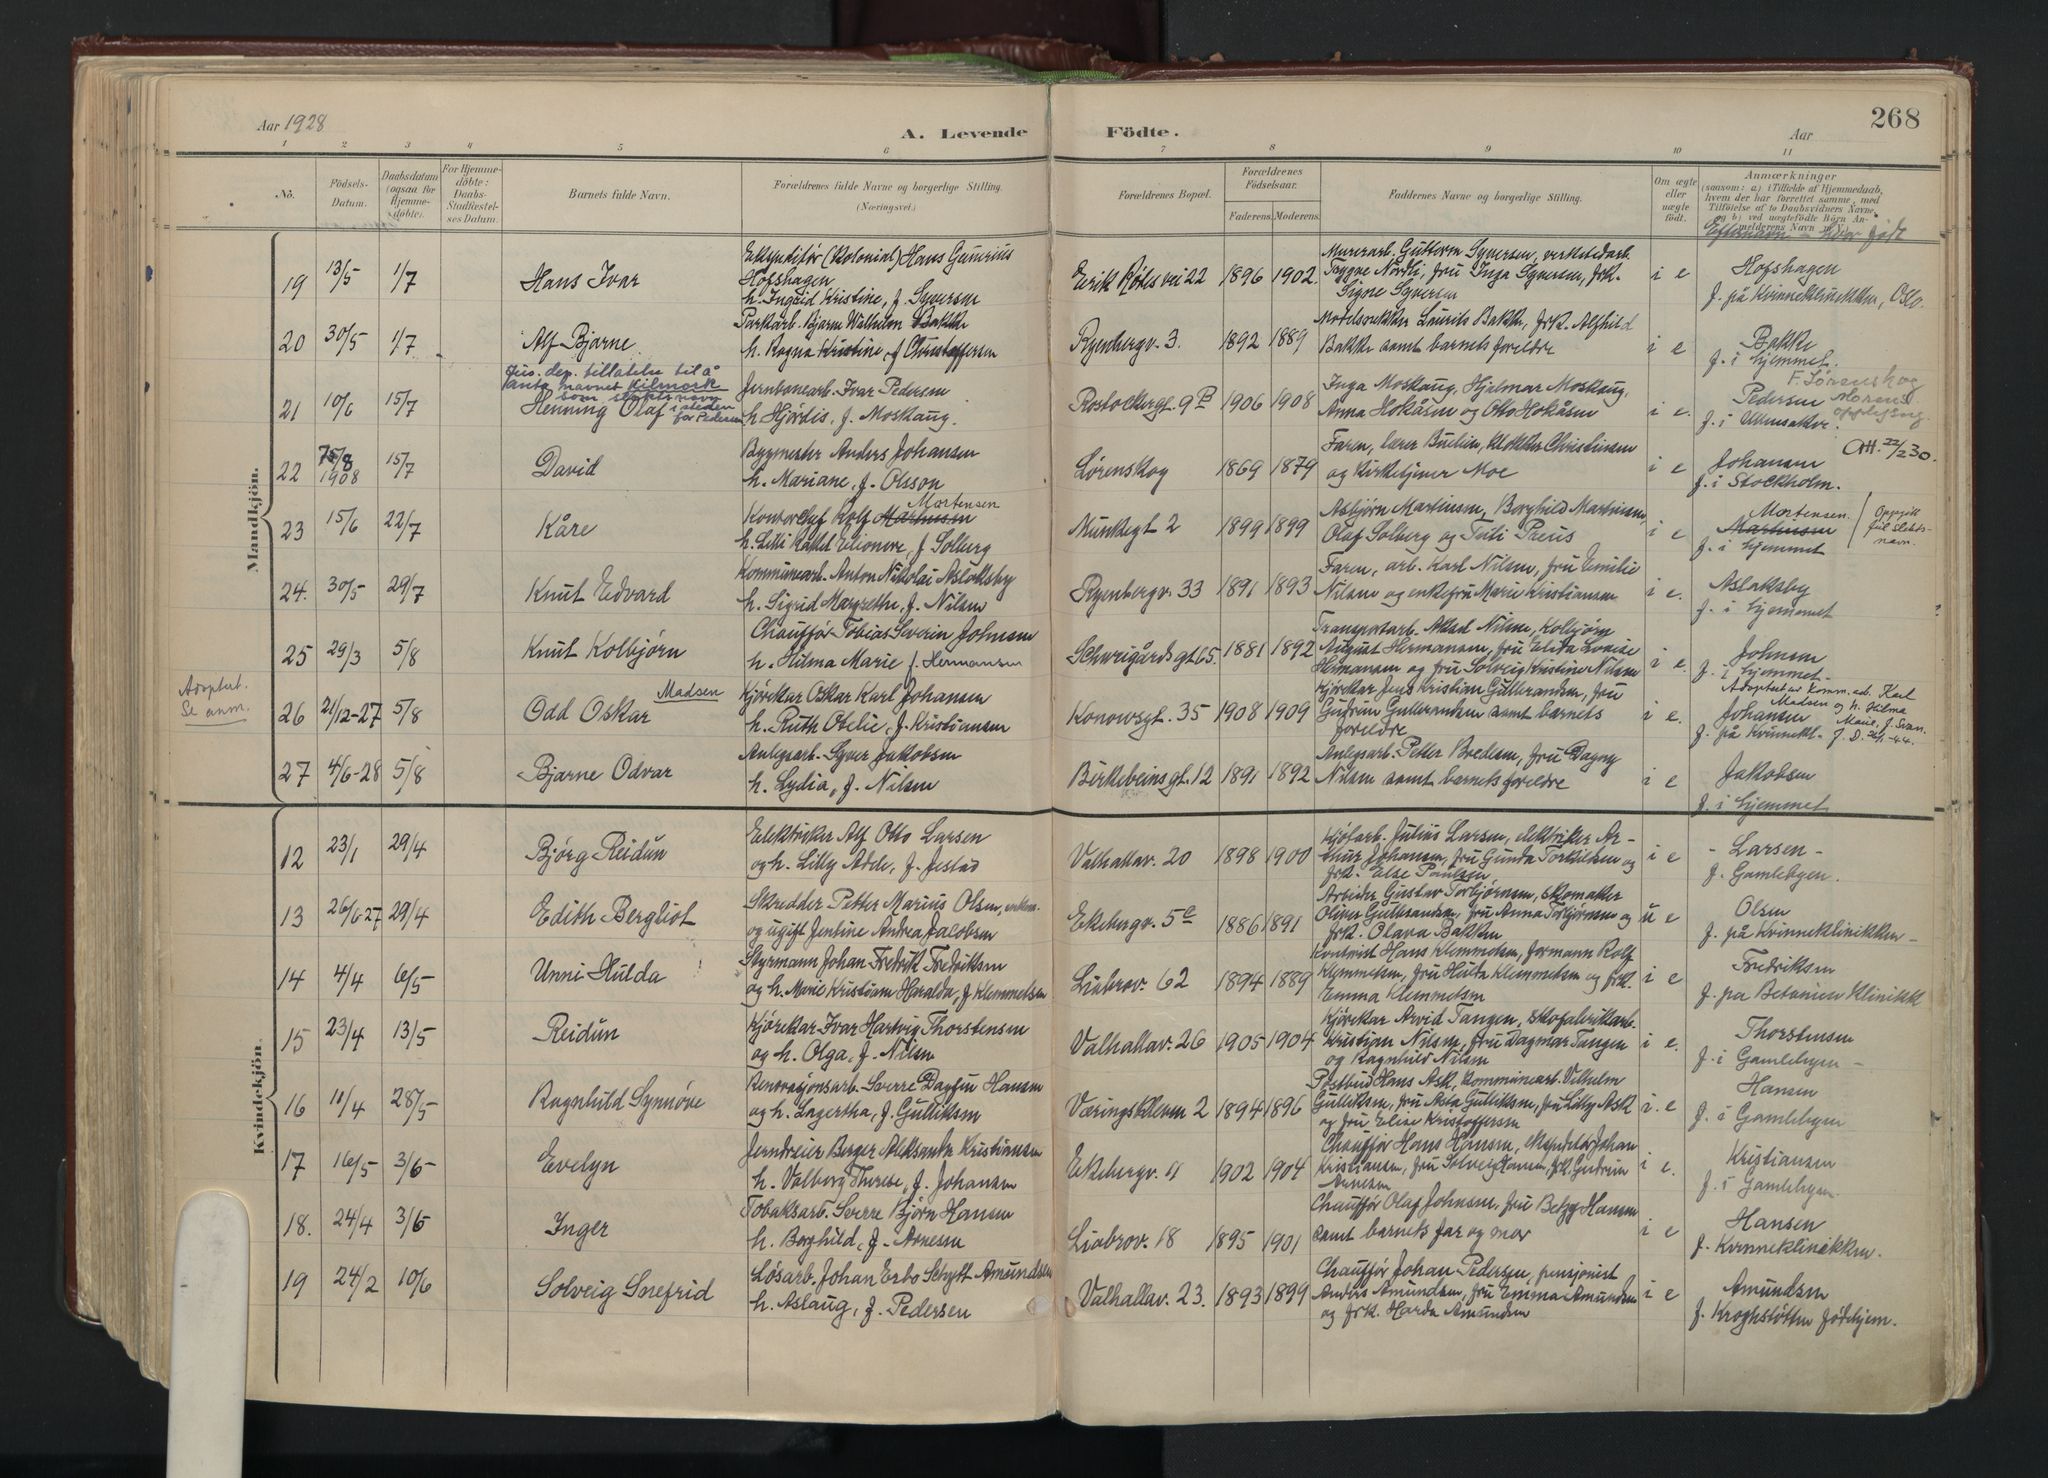 Aar 1928
A. Levende
Födte.
Aar
268
1 2 3 4 5 6 7 8 9 10 11
No.
Födsels-
Datum.
Daabsdatum
(ogsaa for
Hjemme-
döbte).
For Hjemme-
döbte:
Daabs-
Stadfæstel-
ses Datum.
Barnets fulde Navn.
Forældrenes fulde Navne og borgerlige Stilling.
(Næringsvei.)
Forældrenes Bopæl.
Forældrenes
Födselsaar.
Faderens. Moderens.
Faddernes Navne og borgerlige Stilling.
Om ægte
eller
uægte
født.
Anmærkninger
(saasom: a) i Tilfælde af Hjemmedaab,
hvem der har forrettet samme, med
Tilföielse af to Daabsvidners Navne,
og b) ved uægtefödte Börn An-
melderens Navn
Efternavn - hvor født
Mandkjön.
19 13/5 1/7 Hans Ivar
Ekspeditør (Kolonial) Hans Gunerius
Hofshagen
h. Ingrid Kristine, f. Syversen
Erik Rødes vei 22 1896 1902
Murerarb. Guttorm Syversen, verkstedarb.
Trygve Nordli, fru Inga Syversen, frk.
Signe Syversen
i e
Hofshagen
f. på Kvinneklinikken, Oslo.
20 30/5 1/7 Alf Bjarne
Parkarb. Bjarne Wilhelm Bakke
h. Ragna Kristine, f. Christoffersen
Ryenbergv. 3. 1892 1889
Modelsnekker Laurits Bakke, frk. Alfhild
Bakke samt barnets foreldre
i e
Bakke
f. i hjemmet.
Jus. dep. tillatelse til å
anta navnet Kilmork
som slektsnavn
i steden
for Pedersen
21 10/6 15/7 Henning Olaf
Jernbanearb. Ivar Pedersen
h. Hjørdis, f. Moskaug.
Rostockergt. 9 B 1906 1908
Inga Moskaug, Hjalmar Moskaug,
Anna Hokåsen og Otto Hokåsen
i e.
Pedersen
f. i Ullensaker.
F. Lørenskog
Morens
opplysng.
22/2 30.
22 15/8 1908 15/7 David
Byggmester Anders Johansen
h. Mariane, f. Olsson
Lørenskog 1869 1879
Faren, lærer Buelien, klokker Christiansen
og Kirketjener Moe
i e
Johansen
f. i Stockholm.
23 15/6 22/7 Kåre
Mortensen
Kontorchef Rolf Martinsen
h. Lilli Rakel Elionore, f. Solberg
Munkegt 2 1899 1899
Asbjørn Martinsen, Borghild Martinsen,
Olaf Solberg og Tuti Preus
i e
Mortensen.
Martinsen
f. i hjemmet
Oppgitt
til slekts-
navn.
24. 30/5 29/7 Knut Edvard
Kommunearb. Anton Nikolai Aslaksby
h. Sigrid Margrethe, f. Nilsen
Ryenbergv. 33 1891 1893
Faren, arb. Karl Nilsen, fru Emilie
Nilsen og enkefru Marie Kristiansen
i e.
Aslaksby
f. i hjemmet
25 29/3 5/8 Knut Kolbjørn
Chauffør Tobias Severin Johnsen
h. Hilma Marie f. Hermansen
Schweigårdsgt 65. 1881 1892
Transportarb. Aksel Nilsen, Kolbjørn
August Hermansen, fru Elida Lovise
Hermansen og fru Solveig Kristine Nilsen
i e.
Johnsen
f. i hjemmet.
Adoptert.
Se anm.
26 21/12-27 5/8 Odd Oskar Madsen
Kjørekar Oskar Karl Johansen
h. Ruth Otelie, f. Kristiansen
Konowsgt. 35 1908 1909
Kjørekar Jens Kristian Gulbrandsen, fru
Gudrun Gulbrandsen samt barnets
foreldre
i e.
Adoptert av komm. arb. Karl
Madsen og h. Hilma
Johansen Marie, f. Svan.
f. på Kvinnekl. J. D. 26/1-44.
27 4/6-28 5/8 Bjarne Odvar
Anlegsarb. Syver Jakobsen
h. Lydia, f. Nilsen
Birkebeinsgt. 12 1891 1892
Anlegsarb. Petter Bredesen, fru Dagny
Nilsen samt barnets foreldre
i e
Jakobsen
f. i hjemmet
Kvindekjön.
12 23/1 29/4 Bjørg Reidun
Elektriker Alf Otto Larsen
og h. Lilly Adele, f. Jestad
Valhallav. 20 1898 1900
Kjølarb. Julius Larsen, elektriker Ar-
thur Johansen, fru Gunda Torkildsen og
frk. Else Paulsen
i e
- Larsen -
f. Gamlebyen.
13 26/6-27 29/4 Edith Bergliot
Skredder Petter Marius Olsen, enkem.
og ugift Jentine Andrea Jacobsen
Ekebergv. 5c 1886 1891
Arbeider Gustav Torbjørnsen, skomaker
Oliver Gulbrandsen, fru Anna Torbjørnsen og
frk. Olava Bakken
u e
Olsen
f. på Kvinneklinikken -
14 4/4 6/5 Unni Hulda
Styrmann Johan Fredrik Fredriksen
og h. Marie Kristiane Haralda, f. Klemmetsen
Liabrov. 62 1894 1889
Hans Klemmetsen, formann Rolf
Klemmetsen, fru Hulda Klemmetsen og frk.
Emma Klemmetsen
i e
Fredriksen
f. på Betanien Klinikk
15 23/4 13/5 Reidun
Kjørekar Ivar Hartvig Thorstensen
og h. Olga, f. Nilsen
Valhallav. 26 1905 1904
Kjørekar Arvid Tangen, skofabrikarb.
Kristian Nilsen, fru Dagmar Tangen
og Ragnhild Nilsen
i e.
Thorstensen
f. i Gamlebyen -
16 11/4 28/5 Ragnhild Synnøve
Renovasjonsarb. Sverre Dagfin Hansen
og h. Lagertha, f. Gulliksen
Væringskleven 2 1894 1896
Postbud Hans Ask, kommunearb. Vilhelm
Gulliksen, fru Asta Gulliksen, fru Lilly Ask
og fru Elise Kristoffersen
i. e
Hansen
f. i Gamlebyen
17 16/5 3/6 Evelyn
Jerndreier Berger Aleksander Kristiansen
h. Valborg Therese, f. Johansen
Ekebergv. 11 1902 1904
Chauffør Hans Hansen, ekspeditør Johan
Kristiansen, fru Solveig Hansen, frk. Gudrun
Arnesen
i e.
Kristiansen
f. i Gamlebyen
18. 24/4 3/6 Inger
Tobaksarb. Sverre Bjørn Hansen
h. Borghild, f. Arnesen
Liabrov. 18 1895 1901
Chauffør Olaf Johnsen, fru Betzy Hansen
samt barnets far og mor
i e
Hansen
f. Kvinneklinikken.
19 24/2 10/6 Solveig Snefrid
Løsarb. Johan Erbo Schytt Amundsen
h. Aslaug, f. Pedersen
Valhallav. 23. 1893 1899
Chauffør Johan Pedersen, pensjonist
Anders Amundsen, fru Emma Amundsen
og frk. Harda Amundsen
i e
Amundsen
f. Kroghstøtten fødehjem.